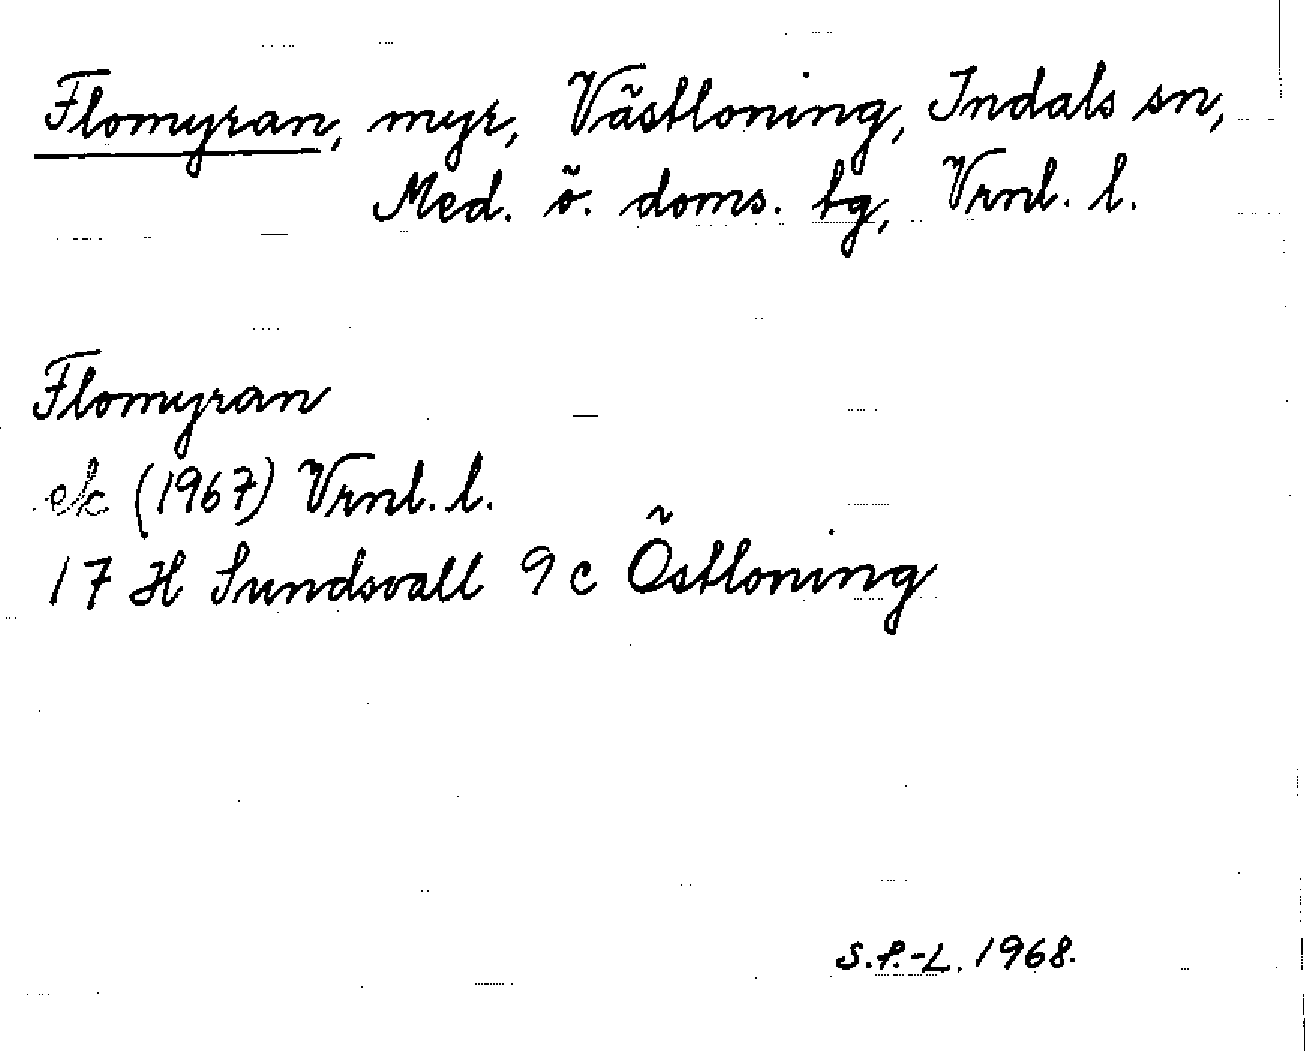 Flomyran, myr, Västloning, Indals sn,
Med. ö. doms. tg, Vrnl. l.
Flomyran
ek (1967) Vrnl. l.
17 H Sundsvall 9 c Östloning
S.P.-L. 1968.